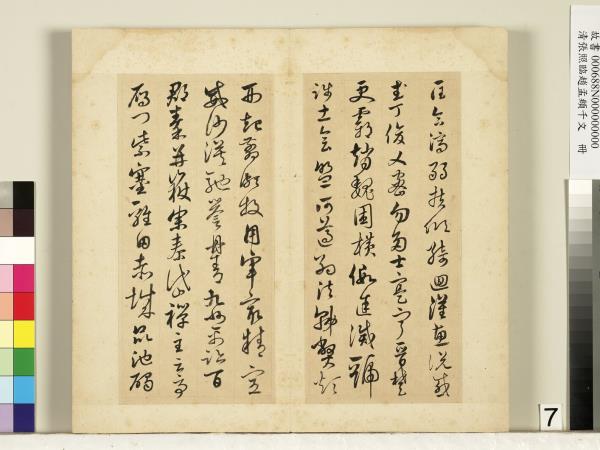 故書 000688N000000000
清張照臨趙孟頫千文 冊
匡合濟弱扶傾綺迴漢惠說感
武丁俊乂密勿多士寔寧晉楚
更霸趙魏困橫假途滅虢
踐土會盟何遵約法韓弊煩
刑起翦頗牧用軍最精宣
威沙漠馳譽丹青九州禹跡百
郡秦并嶽宗泰岱禪主云亭
雁門紫塞雞田赤城昆池碣
7